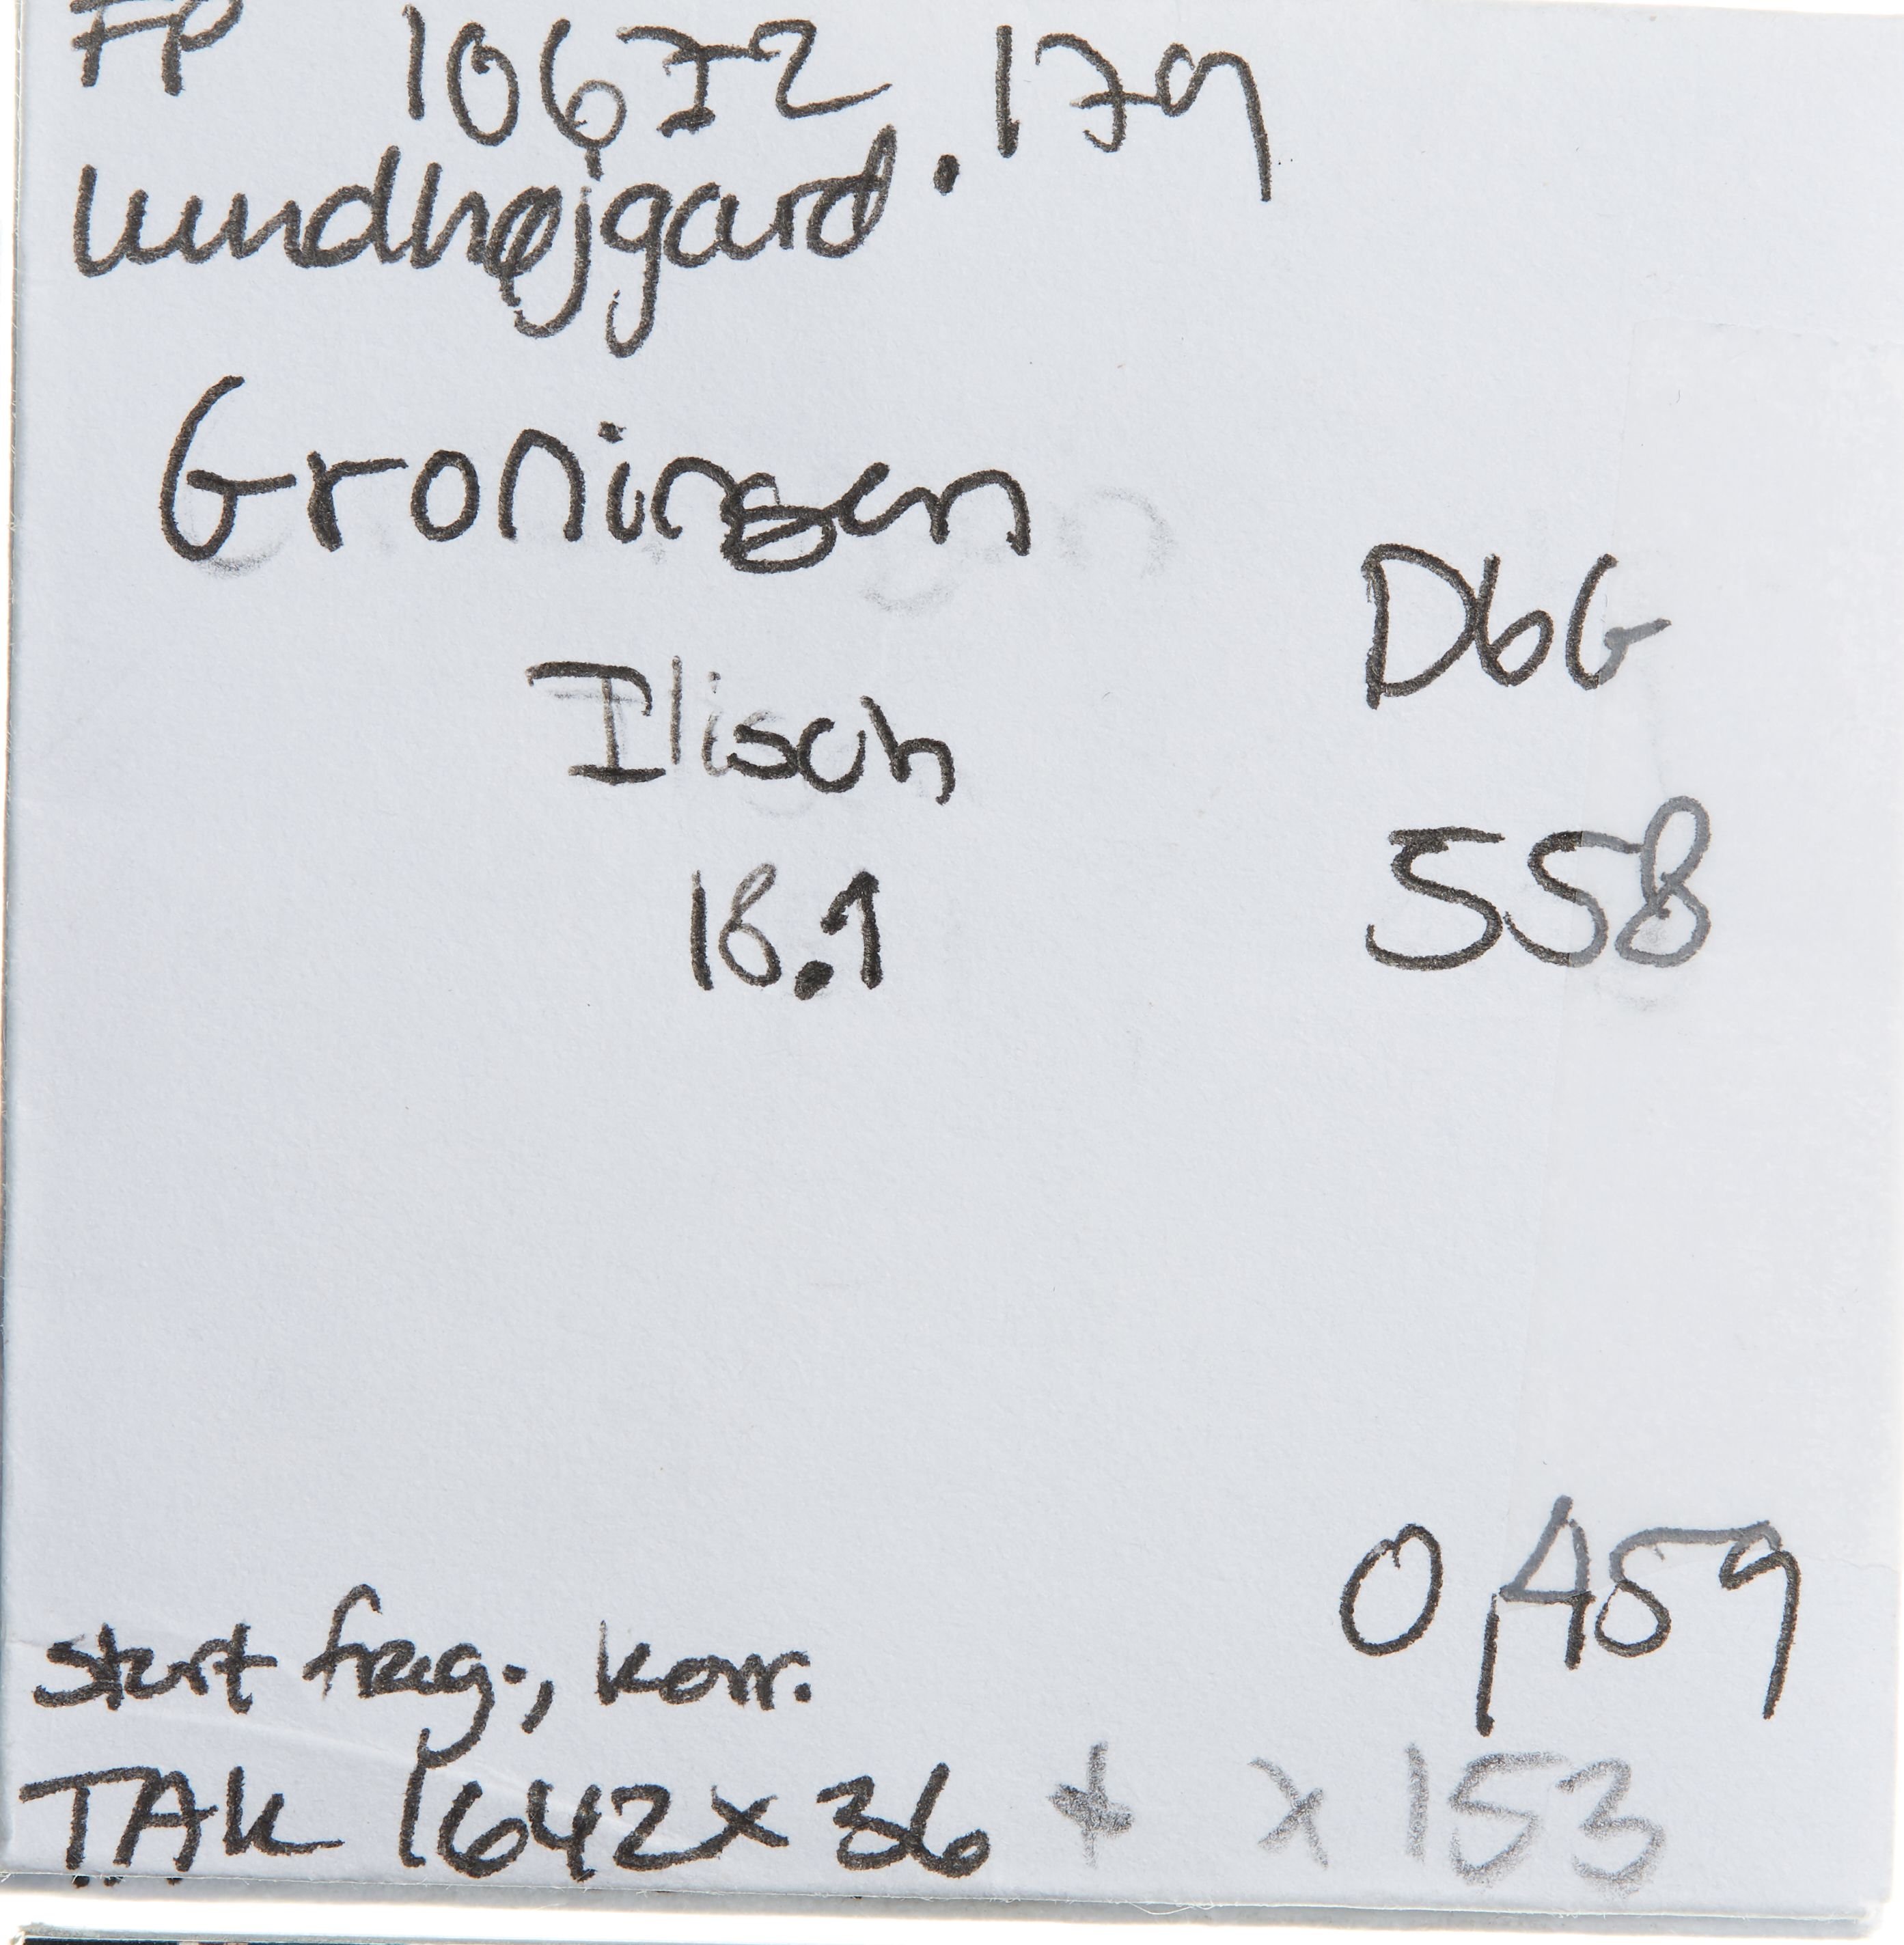 FP 10672.179
Lundhøjgard
Groningen
DbG
Ilisch
558
18.1
0,459
stort frag., korr.
TAK 1642x36 + x 153